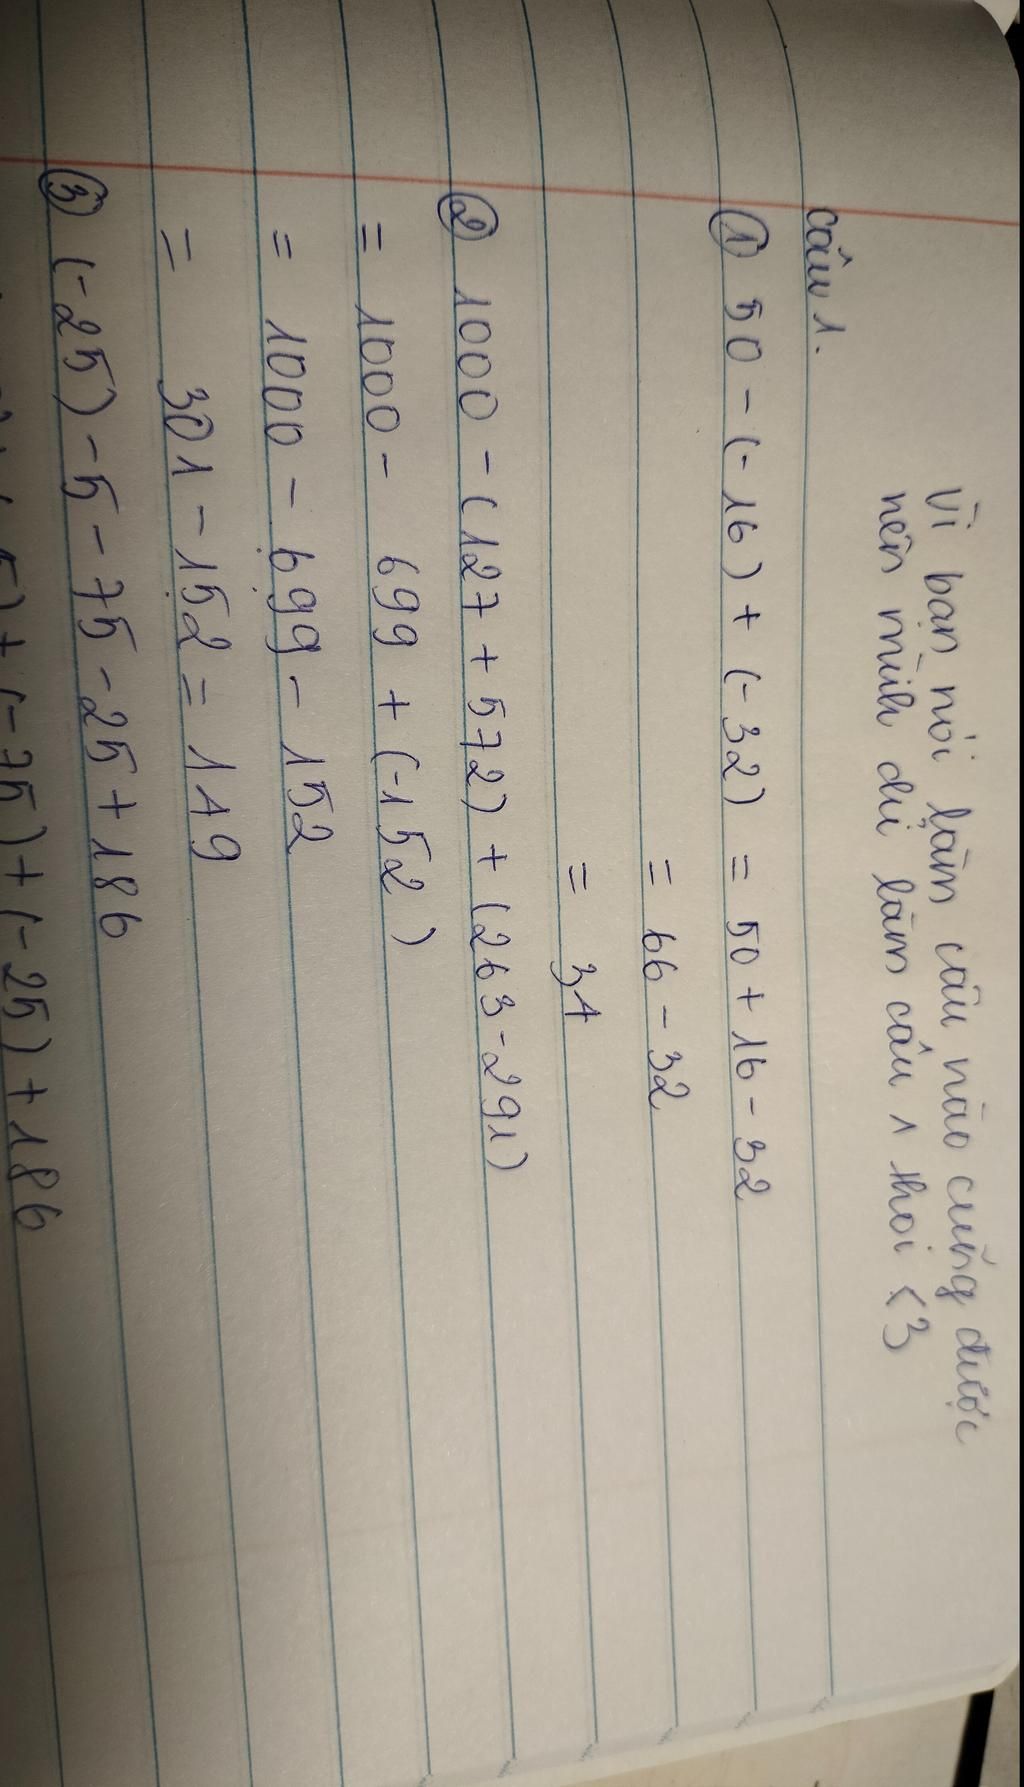 Vì bạn nói làm câu nào cũng được
nên mình chỉ làm câu 1 thoi <3
câu 1.
① 50 - (-16) + (-32) = 50 + 16 - 32
= 66 - 32
= 34
② 1000 - (127 + 572) + (263 - 291)
= 1000 - 699 + (-152)
= 1000 - 699 - 152
= 301 - 152 = 149
③ (-25) - 5 - 75 - 25 + 186
5) + (-75) + (-25) + 186